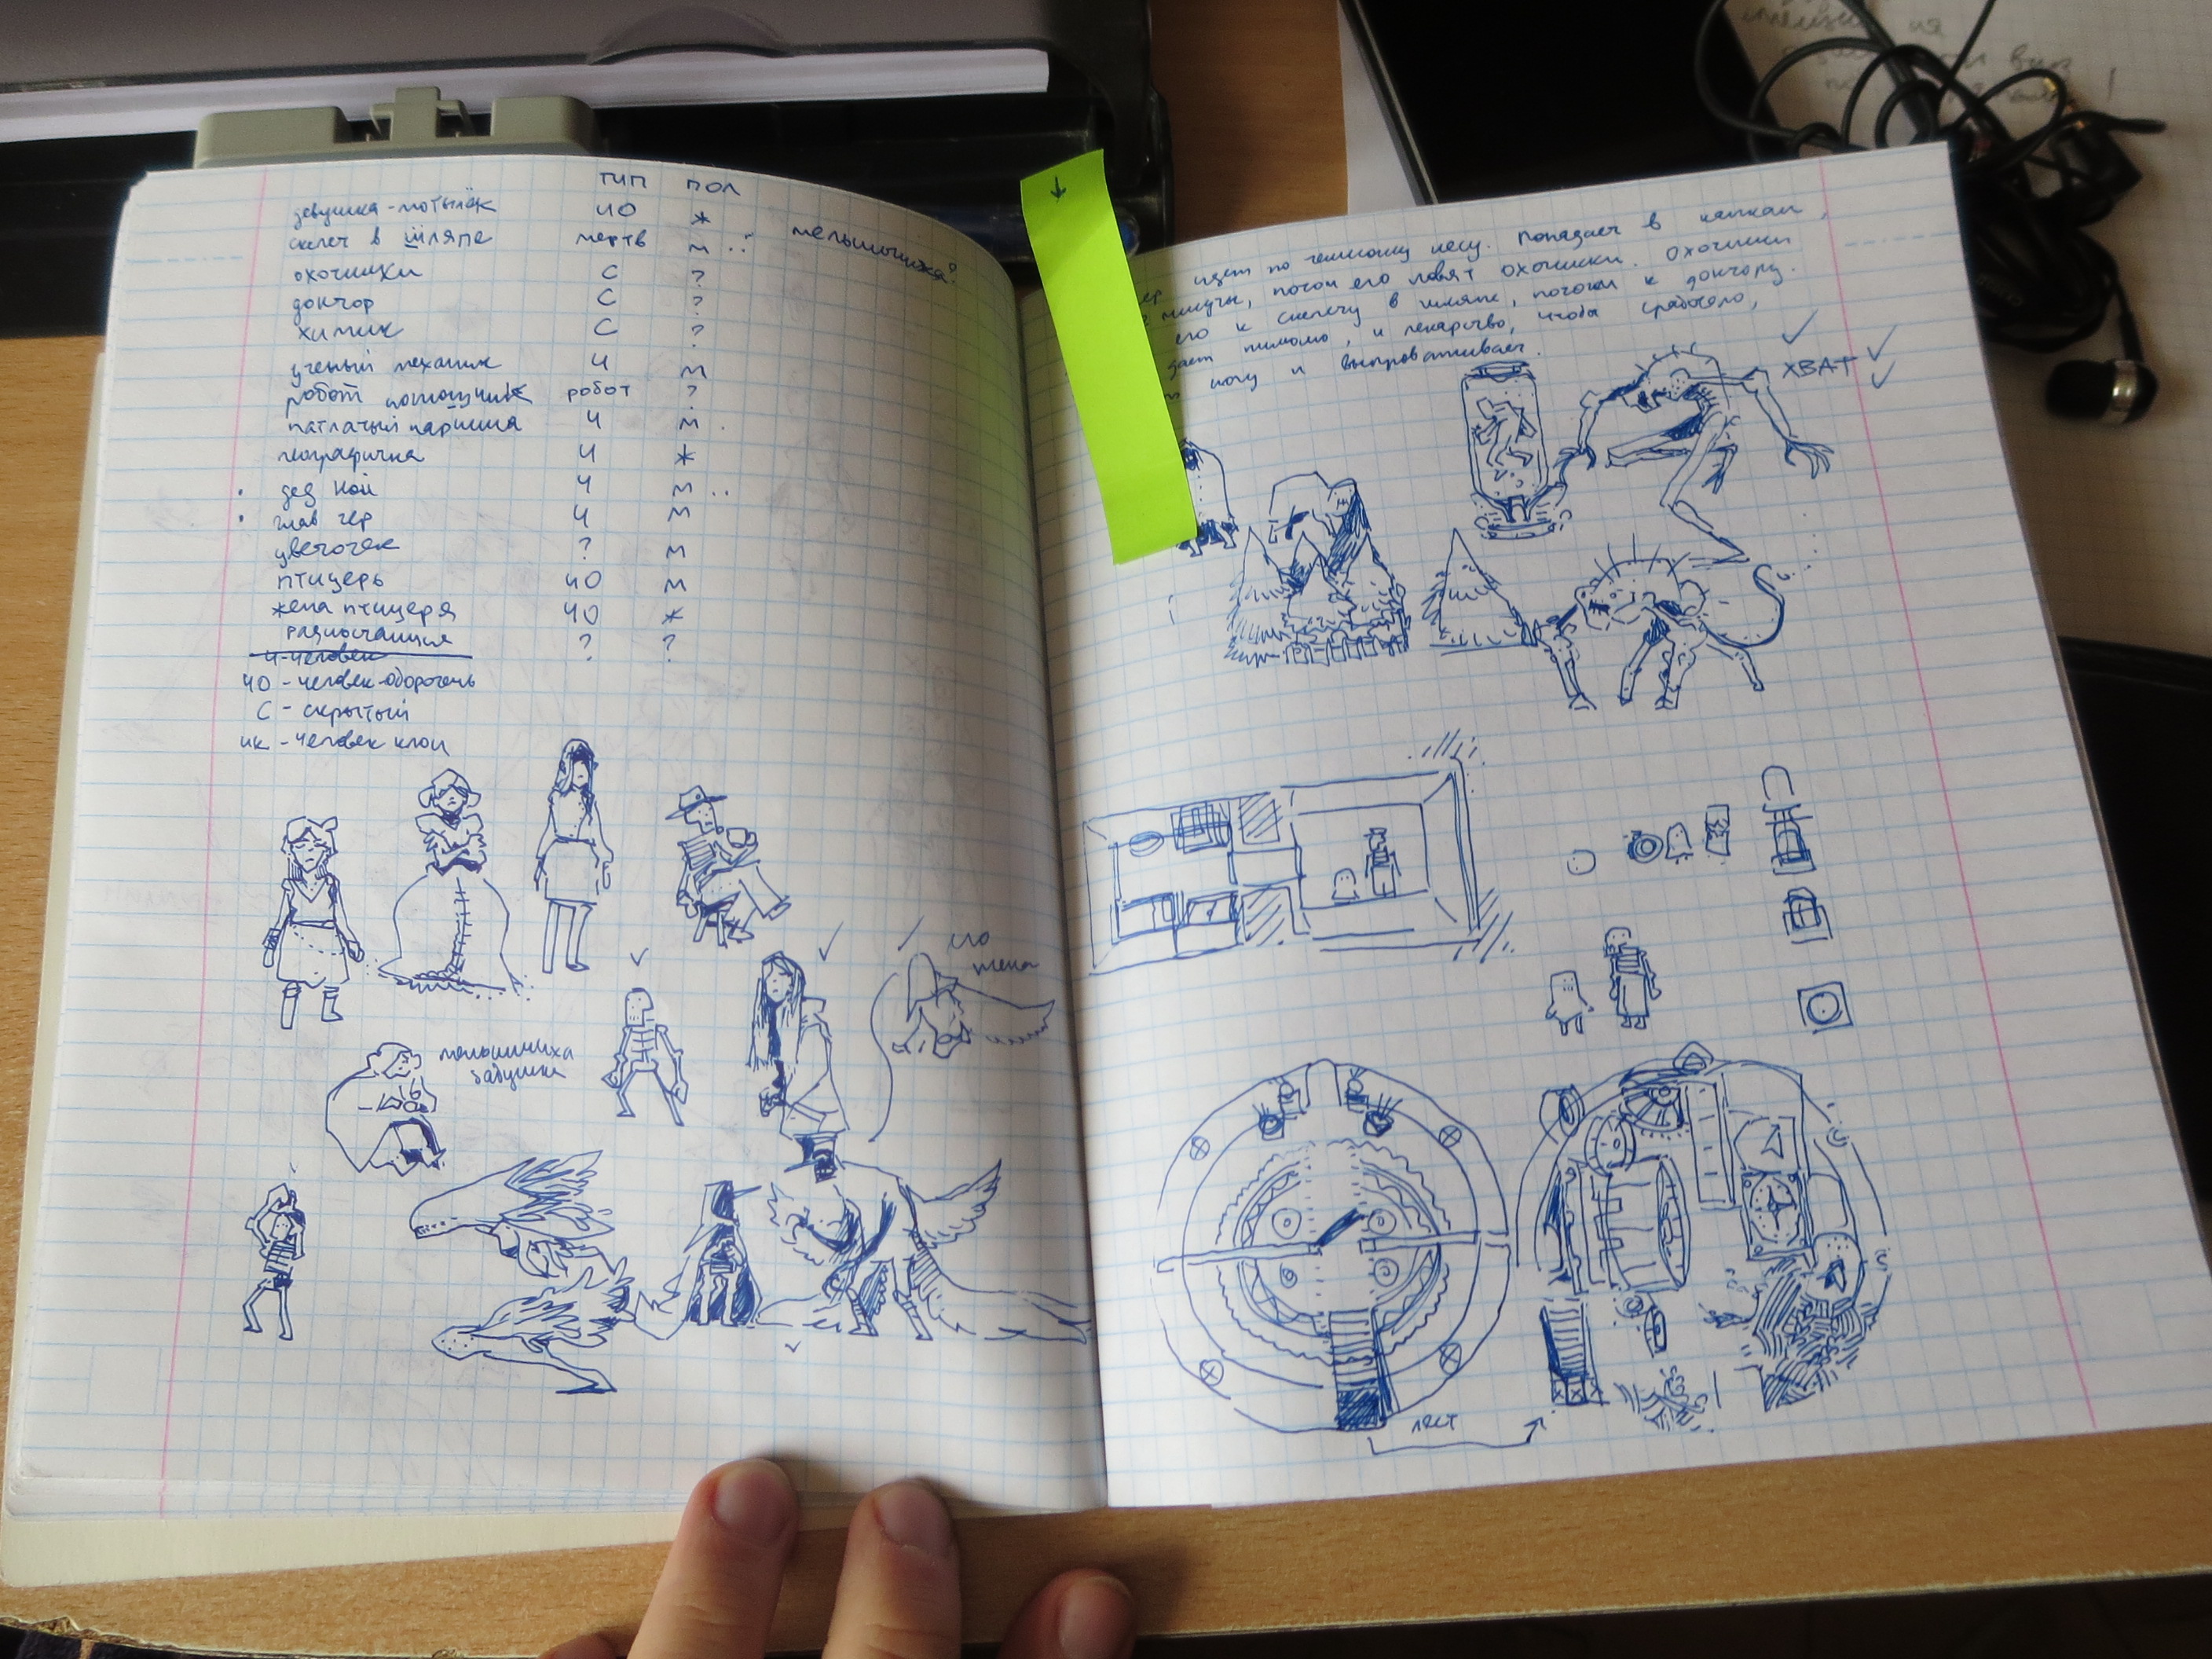 ТИП ПОЛ
девушка-мотылёк ЧО ж
скелет в шляпе мертв м..? мельничиха?
охотники С ?
доктор С ?
химик С ?
ученый механик Ч м
робот помощник робот ?
патлатый париша Ч м.
географичка Ч ж
· дед Ной Ч м..
· глав гер Ч м
цветочек ? м
птицерь ЧО м
жена птицеря ЧО ж
радиостанция ? ?
Ч-человек
ЧО - человек-оборотень
С - скрытый
ЧК - человек клон
его
жена
мельничиха
бабушка
идет по темному лесу. Попадает в капкан,
потом его ловят охотники. Охотники
его к скелету в шляпе, потом к доктору.
и лекарство, чтобы
ногу и выпроваживает.
ХВАТ
лест